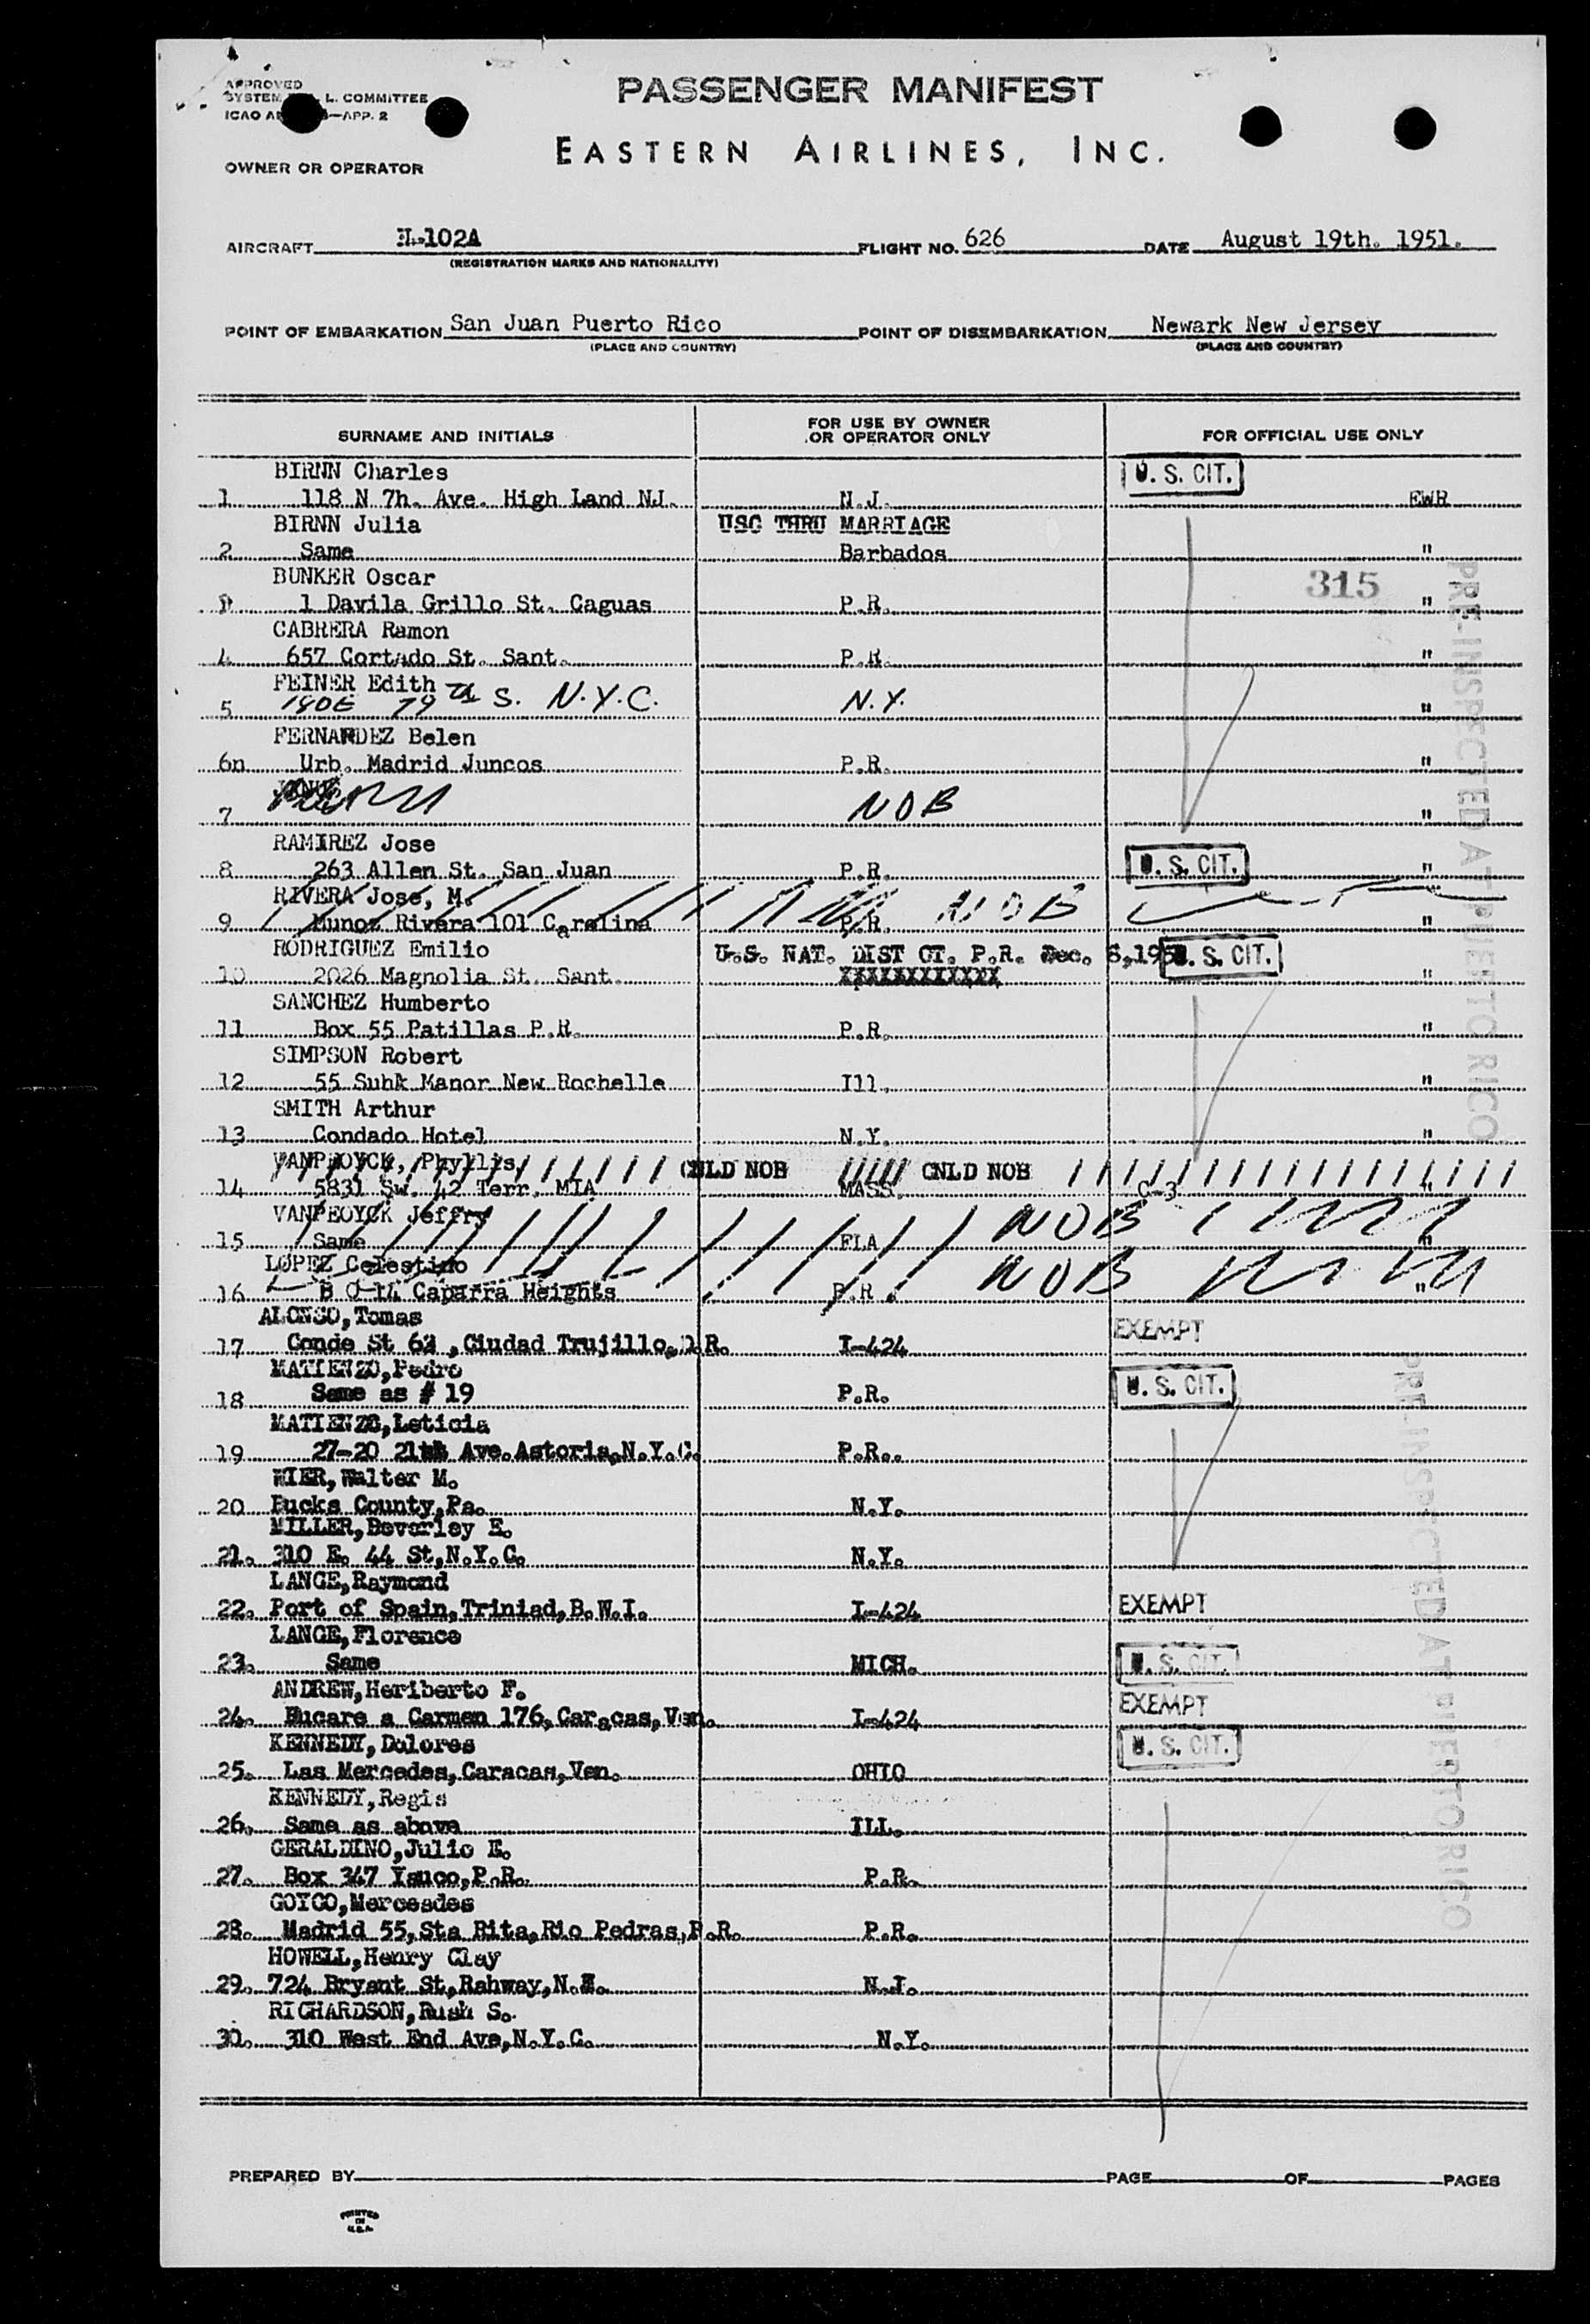 APPROVED
SYSTEM L. COMMITTEE
ICAO —APP. 2
PASSENGER MANIFEST
OWNER OR OPERATOR
EASTERN AIRLINES, INC.
AIRCRAFT 102A FLIGHT NO. 626 DATE August 19th. 1951.
(REGISTRATION MARKS AND NATIONALITY)
POINT OF EMBARKATION San Juan Puerto Rico POINT OF DISEMBARKATION Newark New Jersey
(PLACE AND COUNTRY) (PLACE AND COUNTRY)
SURNAME AND INITIALS FOR USE BY OWNER OR OPERATOR ONLY FOR OFFICIAL USE ONLY
BIRNN Charles U. S. CIT.
1 118 N 7h. Ave. High Land NJ. N.J. EWR
BIRNN Julia USC THRU MARRIAGE
2 Same Barbados "
BUNKER Oscar 315
1 Davila Grillo St. Caguas P.R. "
CABRERA Ramon
4 657 Cortado St. Sant. P.R. "
FEINER Edith
5 79th S. N.Y.C. N.Y. "
FERNANDEZ Belen
6n Urb. Madrid Juncos P.R. "
7 NOB "
RAMIREZ Jose U. S. CIT.
8 263 Allen St. San Juan P.R. "
RIVERA Jose, M. NOB
9 Munoz Rivera 101 Carolina P.R. "
RODRIGUEZ Emilio U.S. NAT. DIST CT. P.R. Dec. U. S. CIT.
10 2026 Magnolia St. Sant. XXXXXXXXXXXX "
SANCHEZ Humberto
11 Box 55 Patillas P.R. P.R. "
SIMPSON Robert
12 55 Suhk Manor New Rochelle Ill. "
SMITH Arthur
13 Condado Hotel N.Y. "
VANPEOYCK, Phyllis CNLD NOB CNLD NOB
14 5831 Sw. 42 Terr. MIA MASS. C-3 "
VANPEOYCK Jeffry NOB
15 Same FLA "
LOPEZ Celestino NOB
16 B O 14 Caparra Heights P.R. "
ALONSO, Tomas EXEMPT
17 Conde St 62 , Ciudad Trujillo, D.R. I-424
MATIENZO, Pedro U. S. CIT.
18 Same as # 19 P.R.
MATIENZO, Leticia
19 27-20 21 Ave. Astoria, N.Y.C. P.R..
WIER, Walter M.
20 Bucks County, Pa. N.Y.
MILLER, Beverley E.
21. 310 E. 44 St, N.Y.C. N.Y.
LANGE, Raymond
22. Port of Spain, Triniad, B.W.I. I-424 EXEMPT
LANGE, Florence
23. Same MICH. U. S. CIT.
ANDREW, Heriberto F. EXEMPT
24. Bucare a Carmen 176, Caracas, Ven. I-424
KENNEDY, Dolores U. S. CIT.
25. Las Mercedes, Caracas, Ven. OHIO
KENNEDY, Regis
26. Same as above ILL.
GERALDINO, Julio E.
27. Box 347 Yauco, P.R. P.R.
GOYCO, Merceades
28. Madrid 55, Sta Rita, Rio Pedras, P.R. P.R.
HOWELL, Henry Clay
29. 724 Bryant St, Rahway, N.J. N.J.
RICHARDSON, Rush S.
30. 310 West End Ave, N.Y.C. N.Y.
PRE-INSPECTED AT PUERTO RICO
PRE-INSPECTED AT PUERTO RICO
PREPARED BY PAGE OF PAGES
PRINTED
IN
U.S.A.